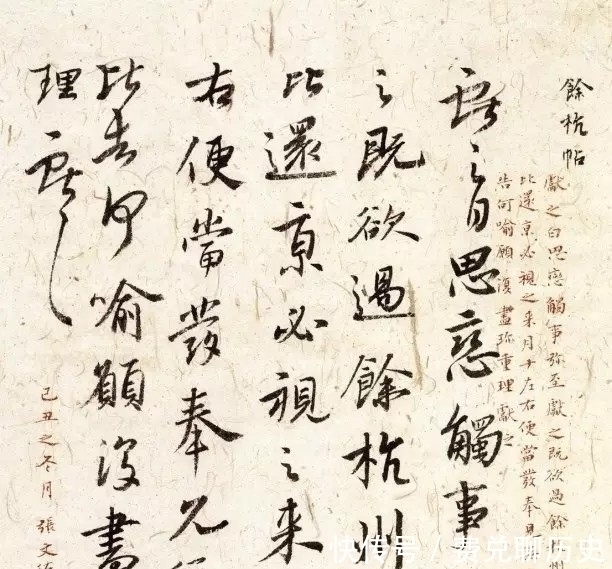 餘杭帖
獻之白思戀觸事弥至獻之既欲過餘杭州
比還京必視之来月十左右便當發奉見
告何喻願復盡珍重理獻之
獻之白思戀觸事
之既欲過餘杭州
比還京必視之来
右便當發奉兄
比告何喻願復盡
理獻之
己丑之冬月張文
快传号 / 费兑聊历史